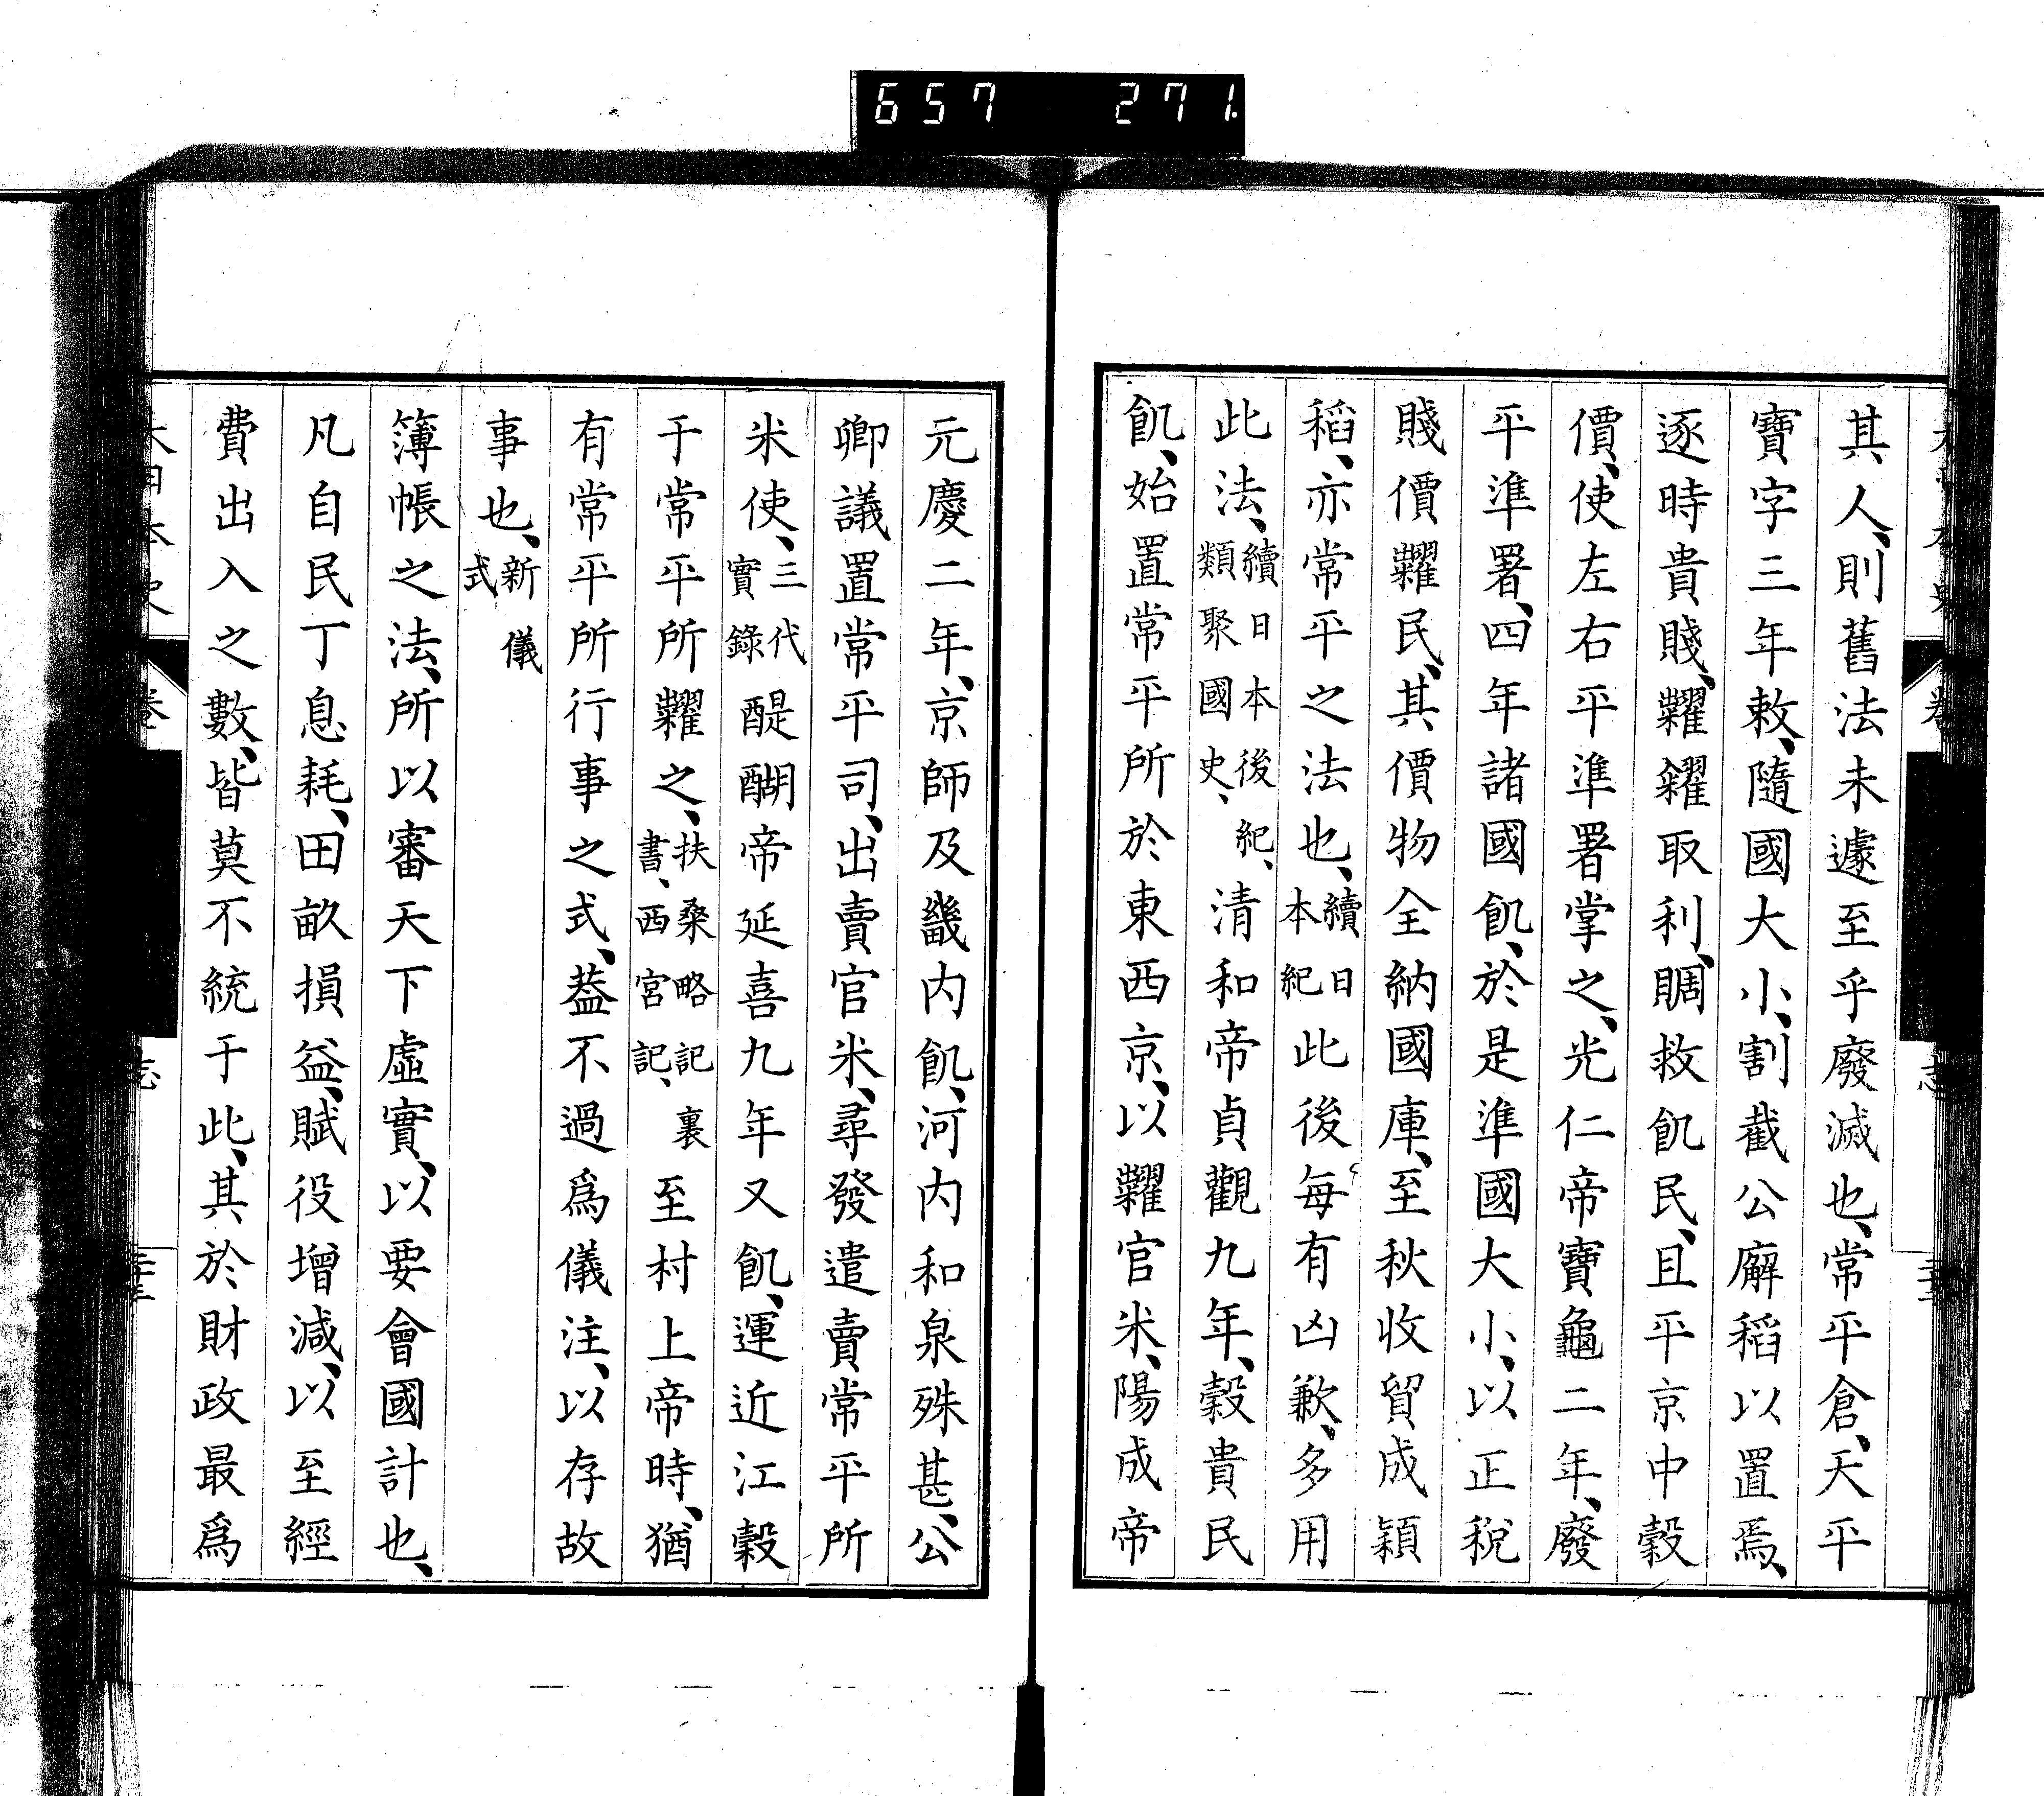 657 271.
其人、則舊法未遽至乎廢滅也、常平倉、天平
寶字三年敕、隨國大小、割截公廨稻以置焉、
逐時貴賤、糶糴取利、賙救飢民、且平京中穀
價、使左右平準署掌之、光仁帝寶龜二年、廢
平準署、四年諸國飢、於是準國大小、以正稅
賤價糶民、其價物全納國庫、至秋收貿成穎
稻、亦常平之法也、續日本紀此後每有凶歉、多用
此法、續日本後紀、類聚國史、清和帝貞觀九年、穀貴民
飢、始置常平所於東西京、以糶官米、陽成帝
元慶二年、京師及畿内飢、河内和泉殊甚、公
卿議置常平司、出賣官米、尋發遣賣常平所
米使、三代實錄醍醐帝延喜九年又飢、運近江穀
于常平所糶之、扶桑略記裏書、西宮記、至村上帝時、猶
有常平所行事之式、葢不過爲儀注、以存故
事也、新儀式
簿帳之法、所以審天下虛實、以要會國計也、
凡自民丁息耗、田畝損益、賦役增減、以至經
費出入之數、皆莫不統于此、其於財政最爲